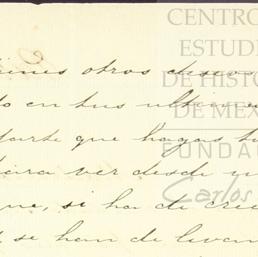 CENTRO
ESTUDI
DE HISTO
DE MÉX
FUNDA
Carlos
otros deseo
en tus ultim
parte que hagas
para ver desde
que, si ha de cre
se han de levan